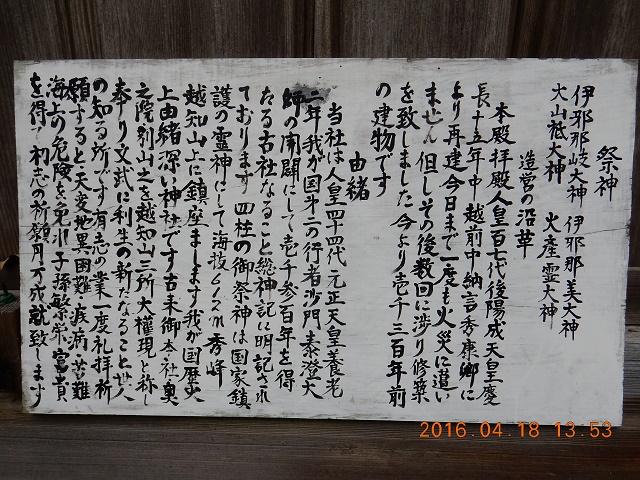 祭神
伊邪那岐大神 伊邪那美大神
大山祗大神 火産霊大神
造営の沿革
本殿拝殿人皇百七代後陽成天皇慶
長十五年中 越前中納言秀康卿に
より再建今日まで一度も火災に遭い
ません 但しその後数回に渉り修築
を致しました 今より壱千三百年前
の建物です
由緒
当社は人皇四十四代元正天皇養老
二年我が国第二の行者沙門泰澄大
師の開闢にして壱千参百年を得
たる古社なること総神記に明記され
ております 四社の御祭神は国家鎮
護の霊神にして海抜612m秀峰
越知山上に鎮座まします我が国歴史
上由緒深い神社です古来御本社奥
之院別山之を越知山三所大権現と称し
奉り文武に利生の新たなること世人
の知る所です有志の業一度礼拝祈
願すると天変地異困難疾病苦難
海上の危険を免れ子孫繁栄富貴
を得て初志の祈願月万成就致します
2016.04.18 13:53